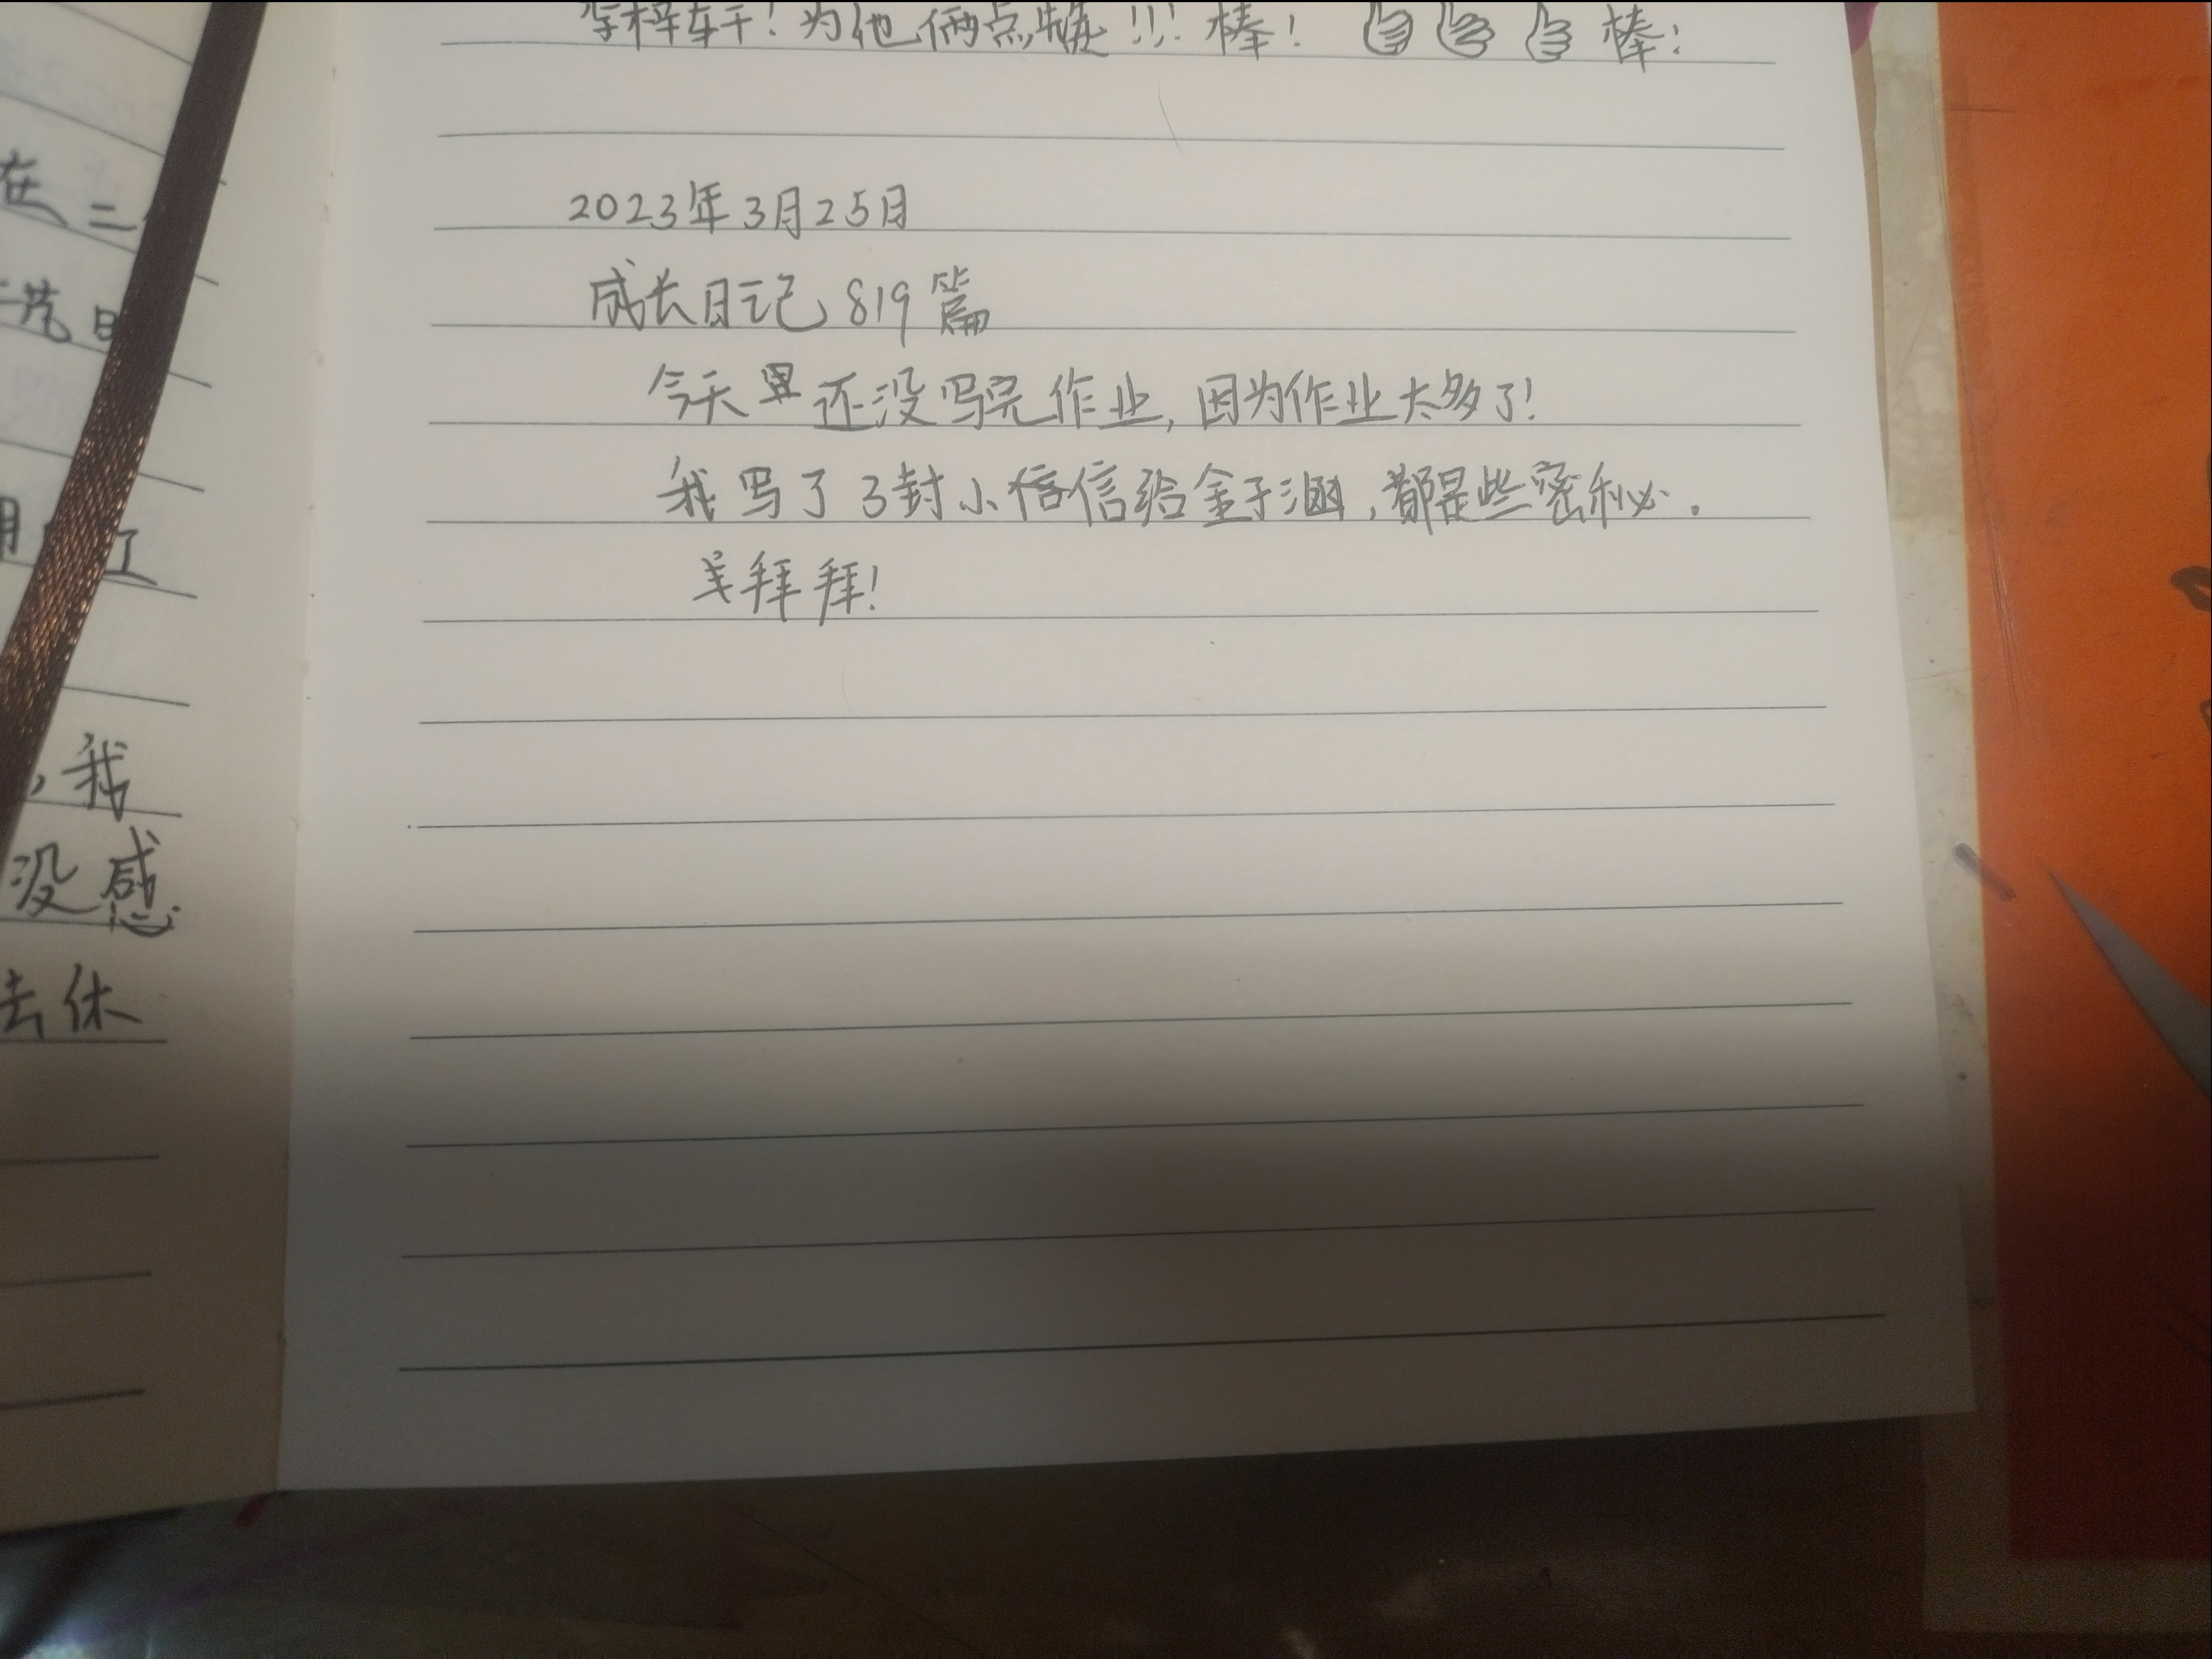 在二
节日
用 了
，我
没感
去休
李梓轩！为他俩点赞！！！棒！ 棒！
2023年3月25日
成长日记819篇
今天 还没写完作业，因为作业太多了！
我写了3封小信信给金子涵，都是些密秘。
拜拜！